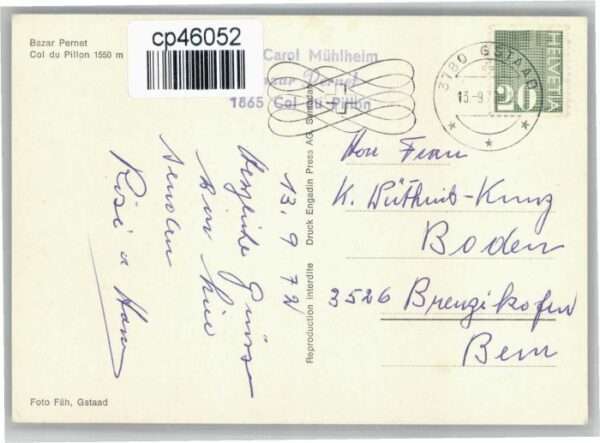 Bazar Pernet
Col du Pillon 1550 m
cp46052
Carol Mühlheim
Bazar Pernet
1865 Col du Pillon
3780 GSTAAD
13-9.7
HELVETIA
20
13. 9 72
Herzliche Grüsse
von hier
senden
Rösi u Hans
Druck Engadin Press AG Samedan
Reproduction interdite
Herr Frau
K. Wüthrich-Kunz
Boden
3526 Brenzikofen
Bern
Foto Fäh, Gstaad